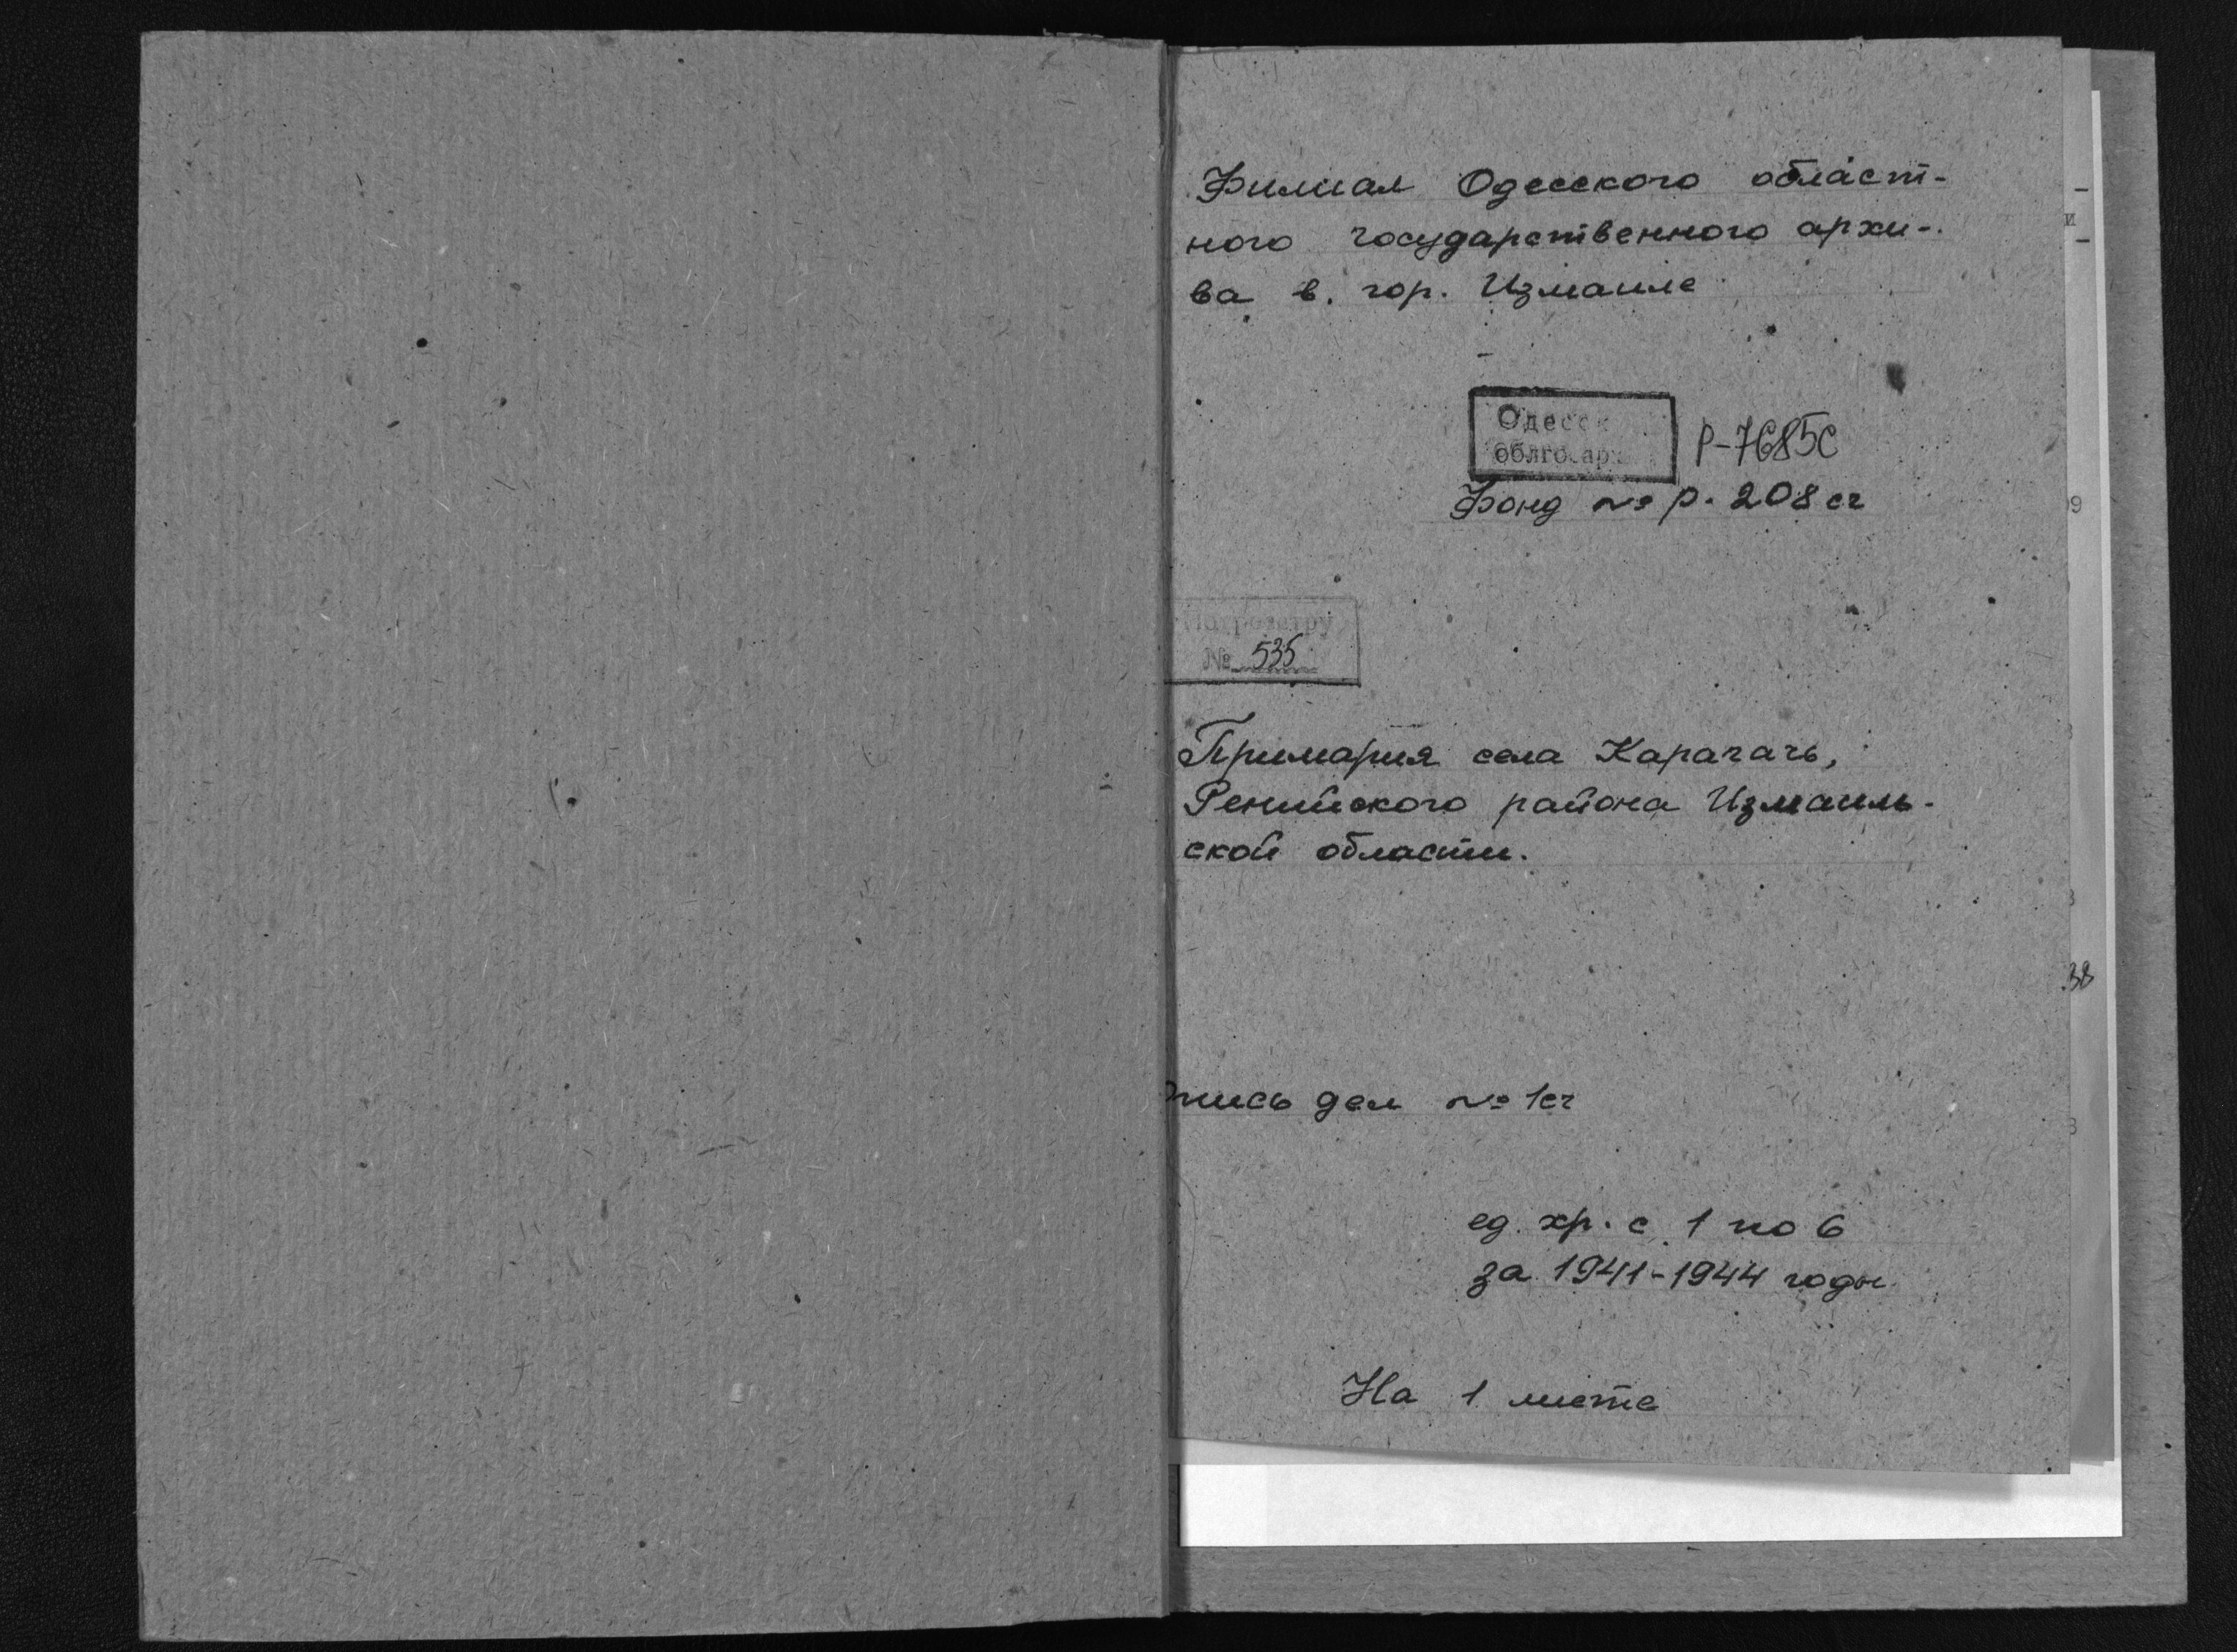 Филиал Одесского област-
ного государственного архи-
ва в. гор. Измаиле
Одесск
облго.ар
Р-7685с
Фонд № р. 208 сг
№ 535
Примария села Карагачь,
Ренийского района Измаиль-
ской области.
пись дел № 1сг
ед. хр. с 1 по 6
за 1941-1944 годы
На 1 листе
и
9
38